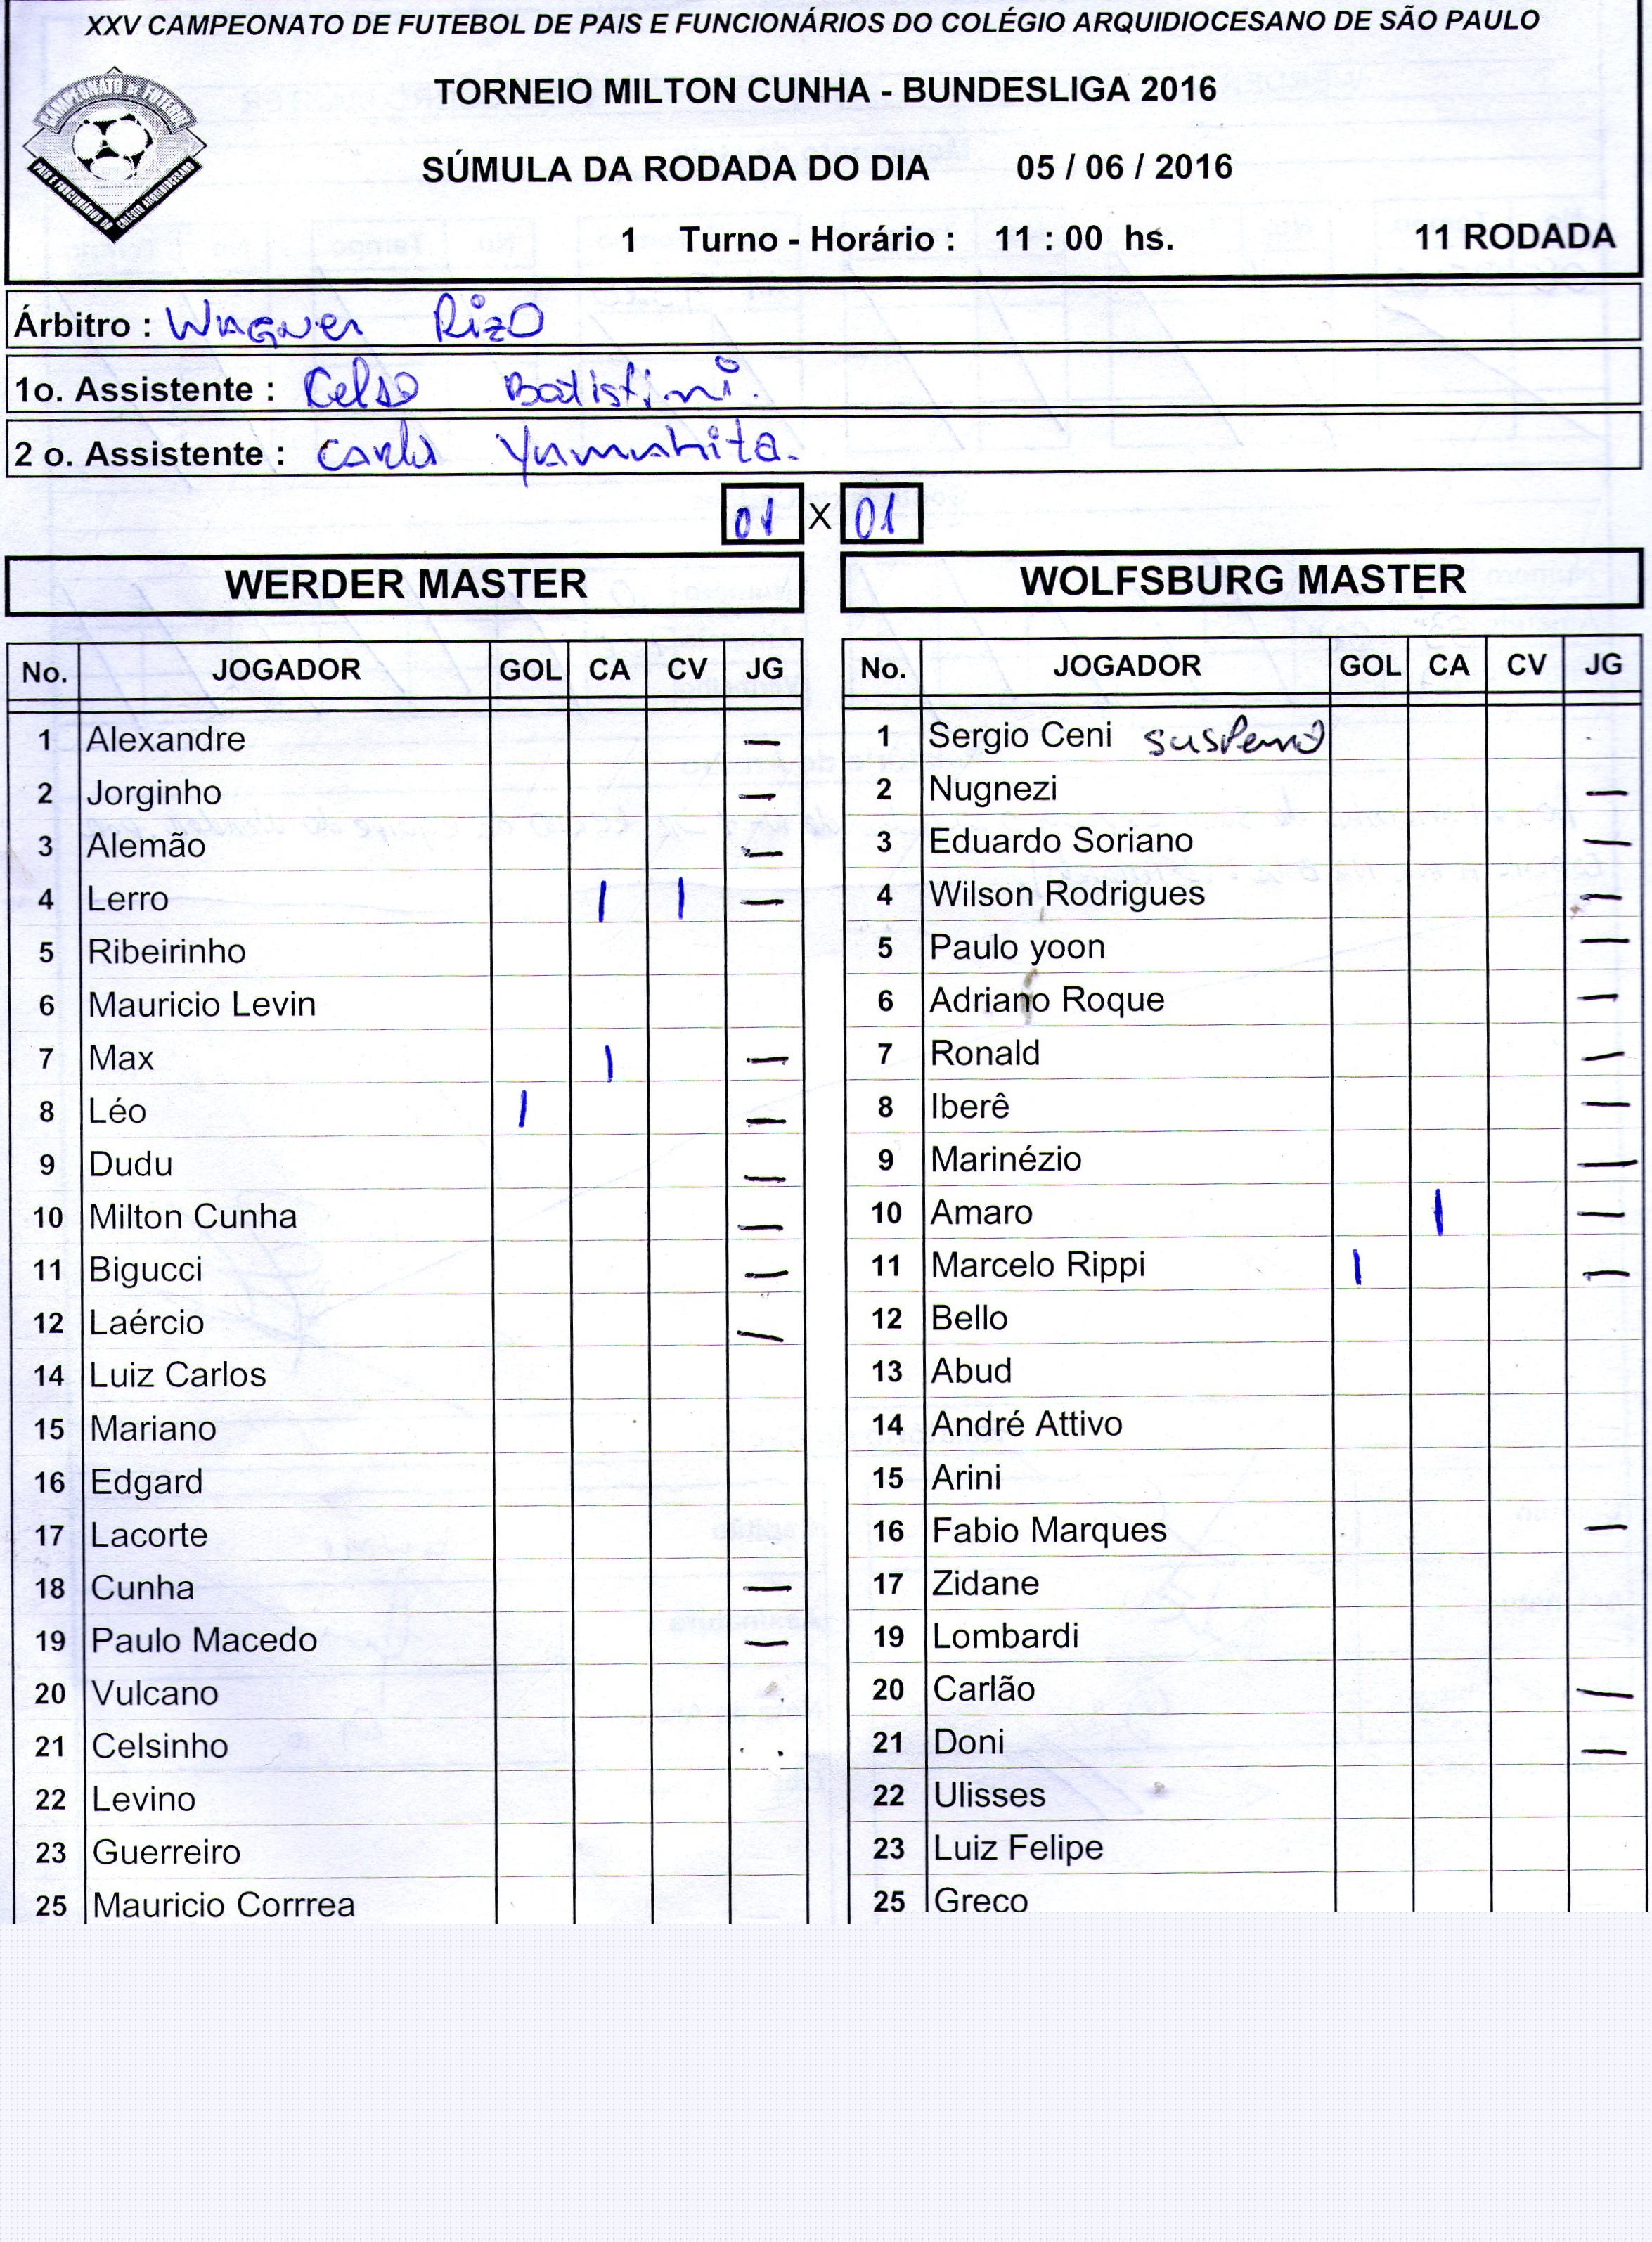 XXV CAMPEONATO DE FUTEBOL DE PAIS E FUNCIONÁRIOS DO COLÉGIO ARQUIDIOCESANO DE SÃO PAULO
CAMPEONATO DE FUTEBOL
PAIS E FUNCIONÁRIOS DO COLÉGIO ARQUIDIOCESANO
TORNEIO MILTON CUNHA - BUNDESLIGA 2016
SÚMULA DA RODADA DO DIA 05 / 06 / 2016
1 Turno - Horário : 11 : 00 hs. 11 RODADA
Árbitro : Wagner Rizo
1o. Assistente : Celso Batistini.
2 o. Assistente : Carlos Yamashita.
01 X 01
WERDER MASTER
No. JOGADOR GOL CA CV JG
1 Alexandre —
2 Jorginho —
3 Alemão —
4 Lerro | | —
5 Ribeirinho
6 Mauricio Levin
7 Max | —
8 Léo | —
9 Dudu —
10 Milton Cunha —
11 Bigucci —
12 Laércio —
14 Luiz Carlos
15 Mariano
16 Edgard
17 Lacorte
18 Cunha —
19 Paulo Macedo —
20 Vulcano
21 Celsinho
22 Levino
23 Guerreiro
25 Mauricio Corrrea
WOLFSBURG MASTER
No. JOGADOR GOL CA CV JG
1 Sergio Ceni suspenso
2 Nugnezi —
3 Eduardo Soriano —
4 Wilson Rodrigues —
5 Paulo yoon —
6 Adriano Roque —
7 Ronald —
8 Iberê —
9 Marinézio —
10 Amaro | —
11 Marcelo Rippi | —
12 Bello
13 Abud
14 André Attivo
15 Arini
16 Fabio Marques —
17 Zidane
19 Lombardi
20 Carlão —
21 Doni —
22 Ulisses
23 Luiz Felipe
25 Greco